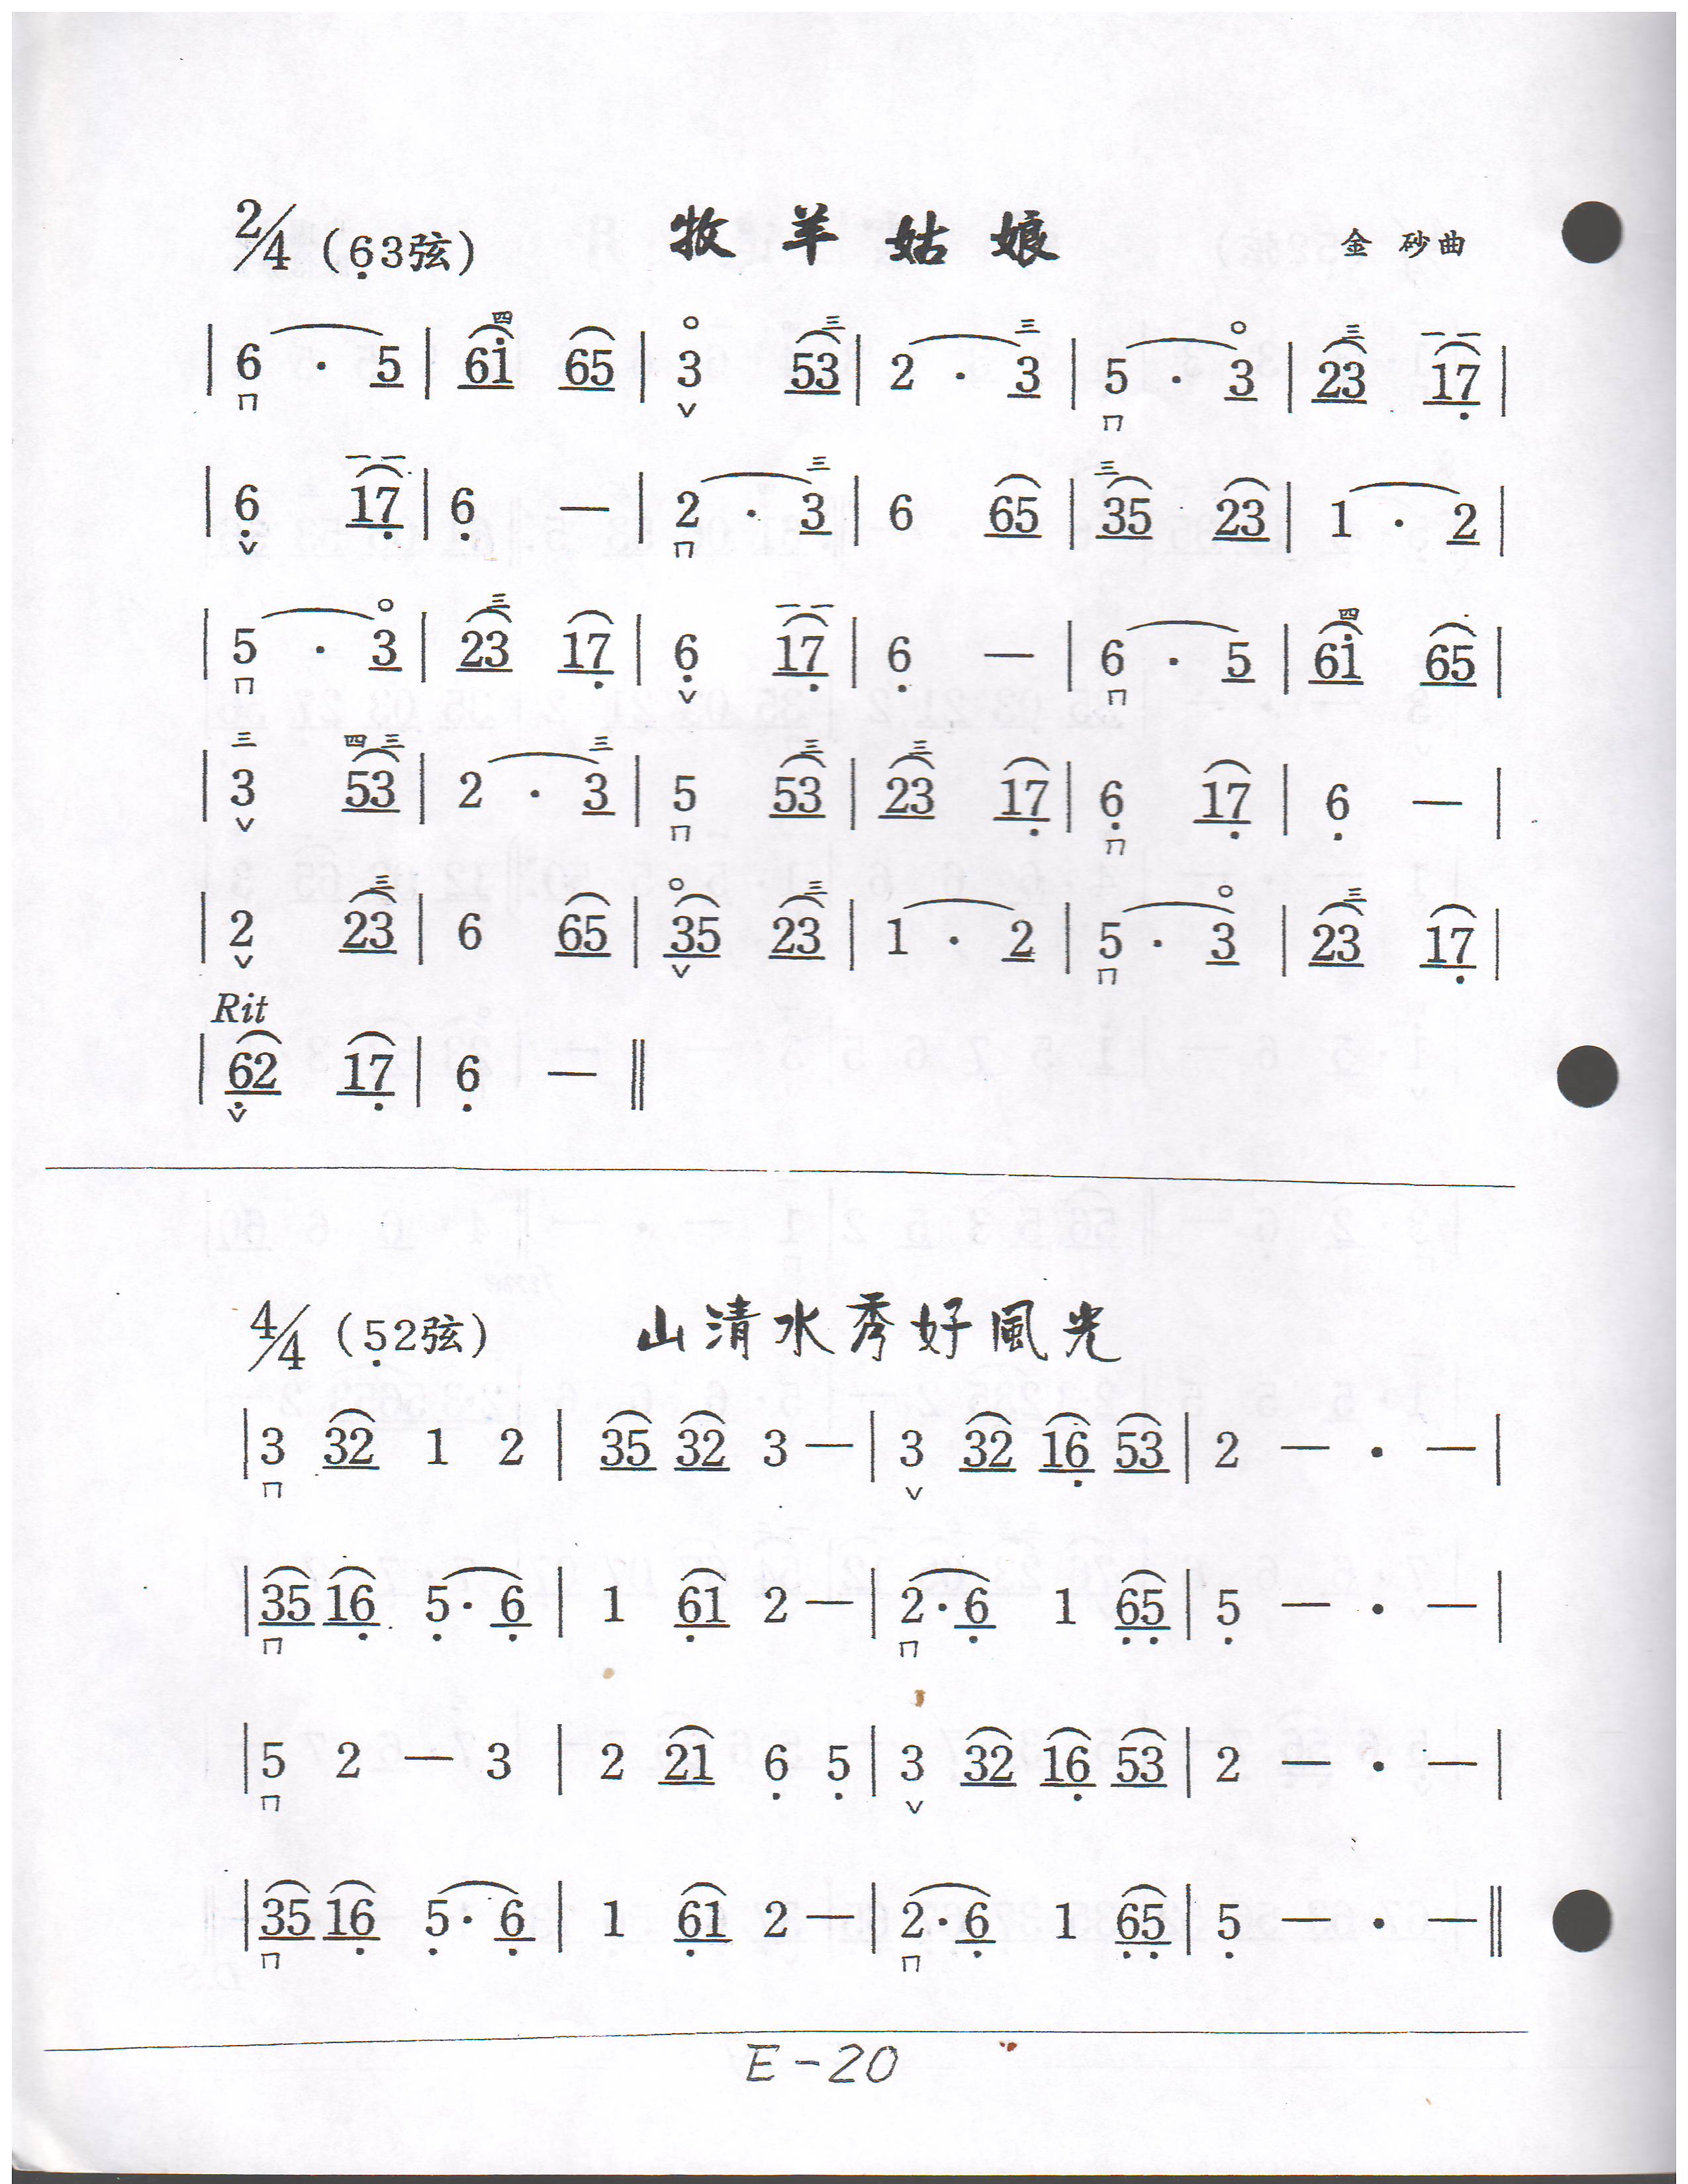 2/4 (6̣3弦) 牧羊姑娘 金砂曲
| 6 · 5 | 6i 65 | 3 53 | 2 · 3 | 5 · 3 | 23 17̣ |
| 6̣ 17̣ | 6̣ — | 2 · 3 | 6 65 | 35 23 | 1 · 2 |
| 5 · 3 | 23 17̣ | 6̣ 17̣ | 6̣ — | 6 · 5 | 6i 65 |
| 3 53 | 2 · 3 | 5 53 | 23 17̣ | 6̣ 17̣ | 6̣ — |
| 2 23 | 6 65 | 35 23 | 1 · 2 | 5 · 3 | 23 17̣ |
Rit
| 6̣2 17̣ | 6̣ — ‖
4/4 (5̣2弦) 山清水秀好風光
| 3 32 1 2 | 35 32 3 — | 3 32 16̣ 53 | 2 — · — |
| 35 16̣ 5̣ · 6̣ | 1 6̣1 2 — | 2 · 6̣ 1 6̣5̣ | 5̣ — · — |
| 5 2 — 3 | 2 21 6̣ 5̣ | 3 32 16̣ 53 | 2 — · — |
| 35 16̣ 5̣ · 6̣ | 1 6̣1 2 — | 2 · 6̣ 1 6̣5̣ | 5̣ — · — ‖
E-20